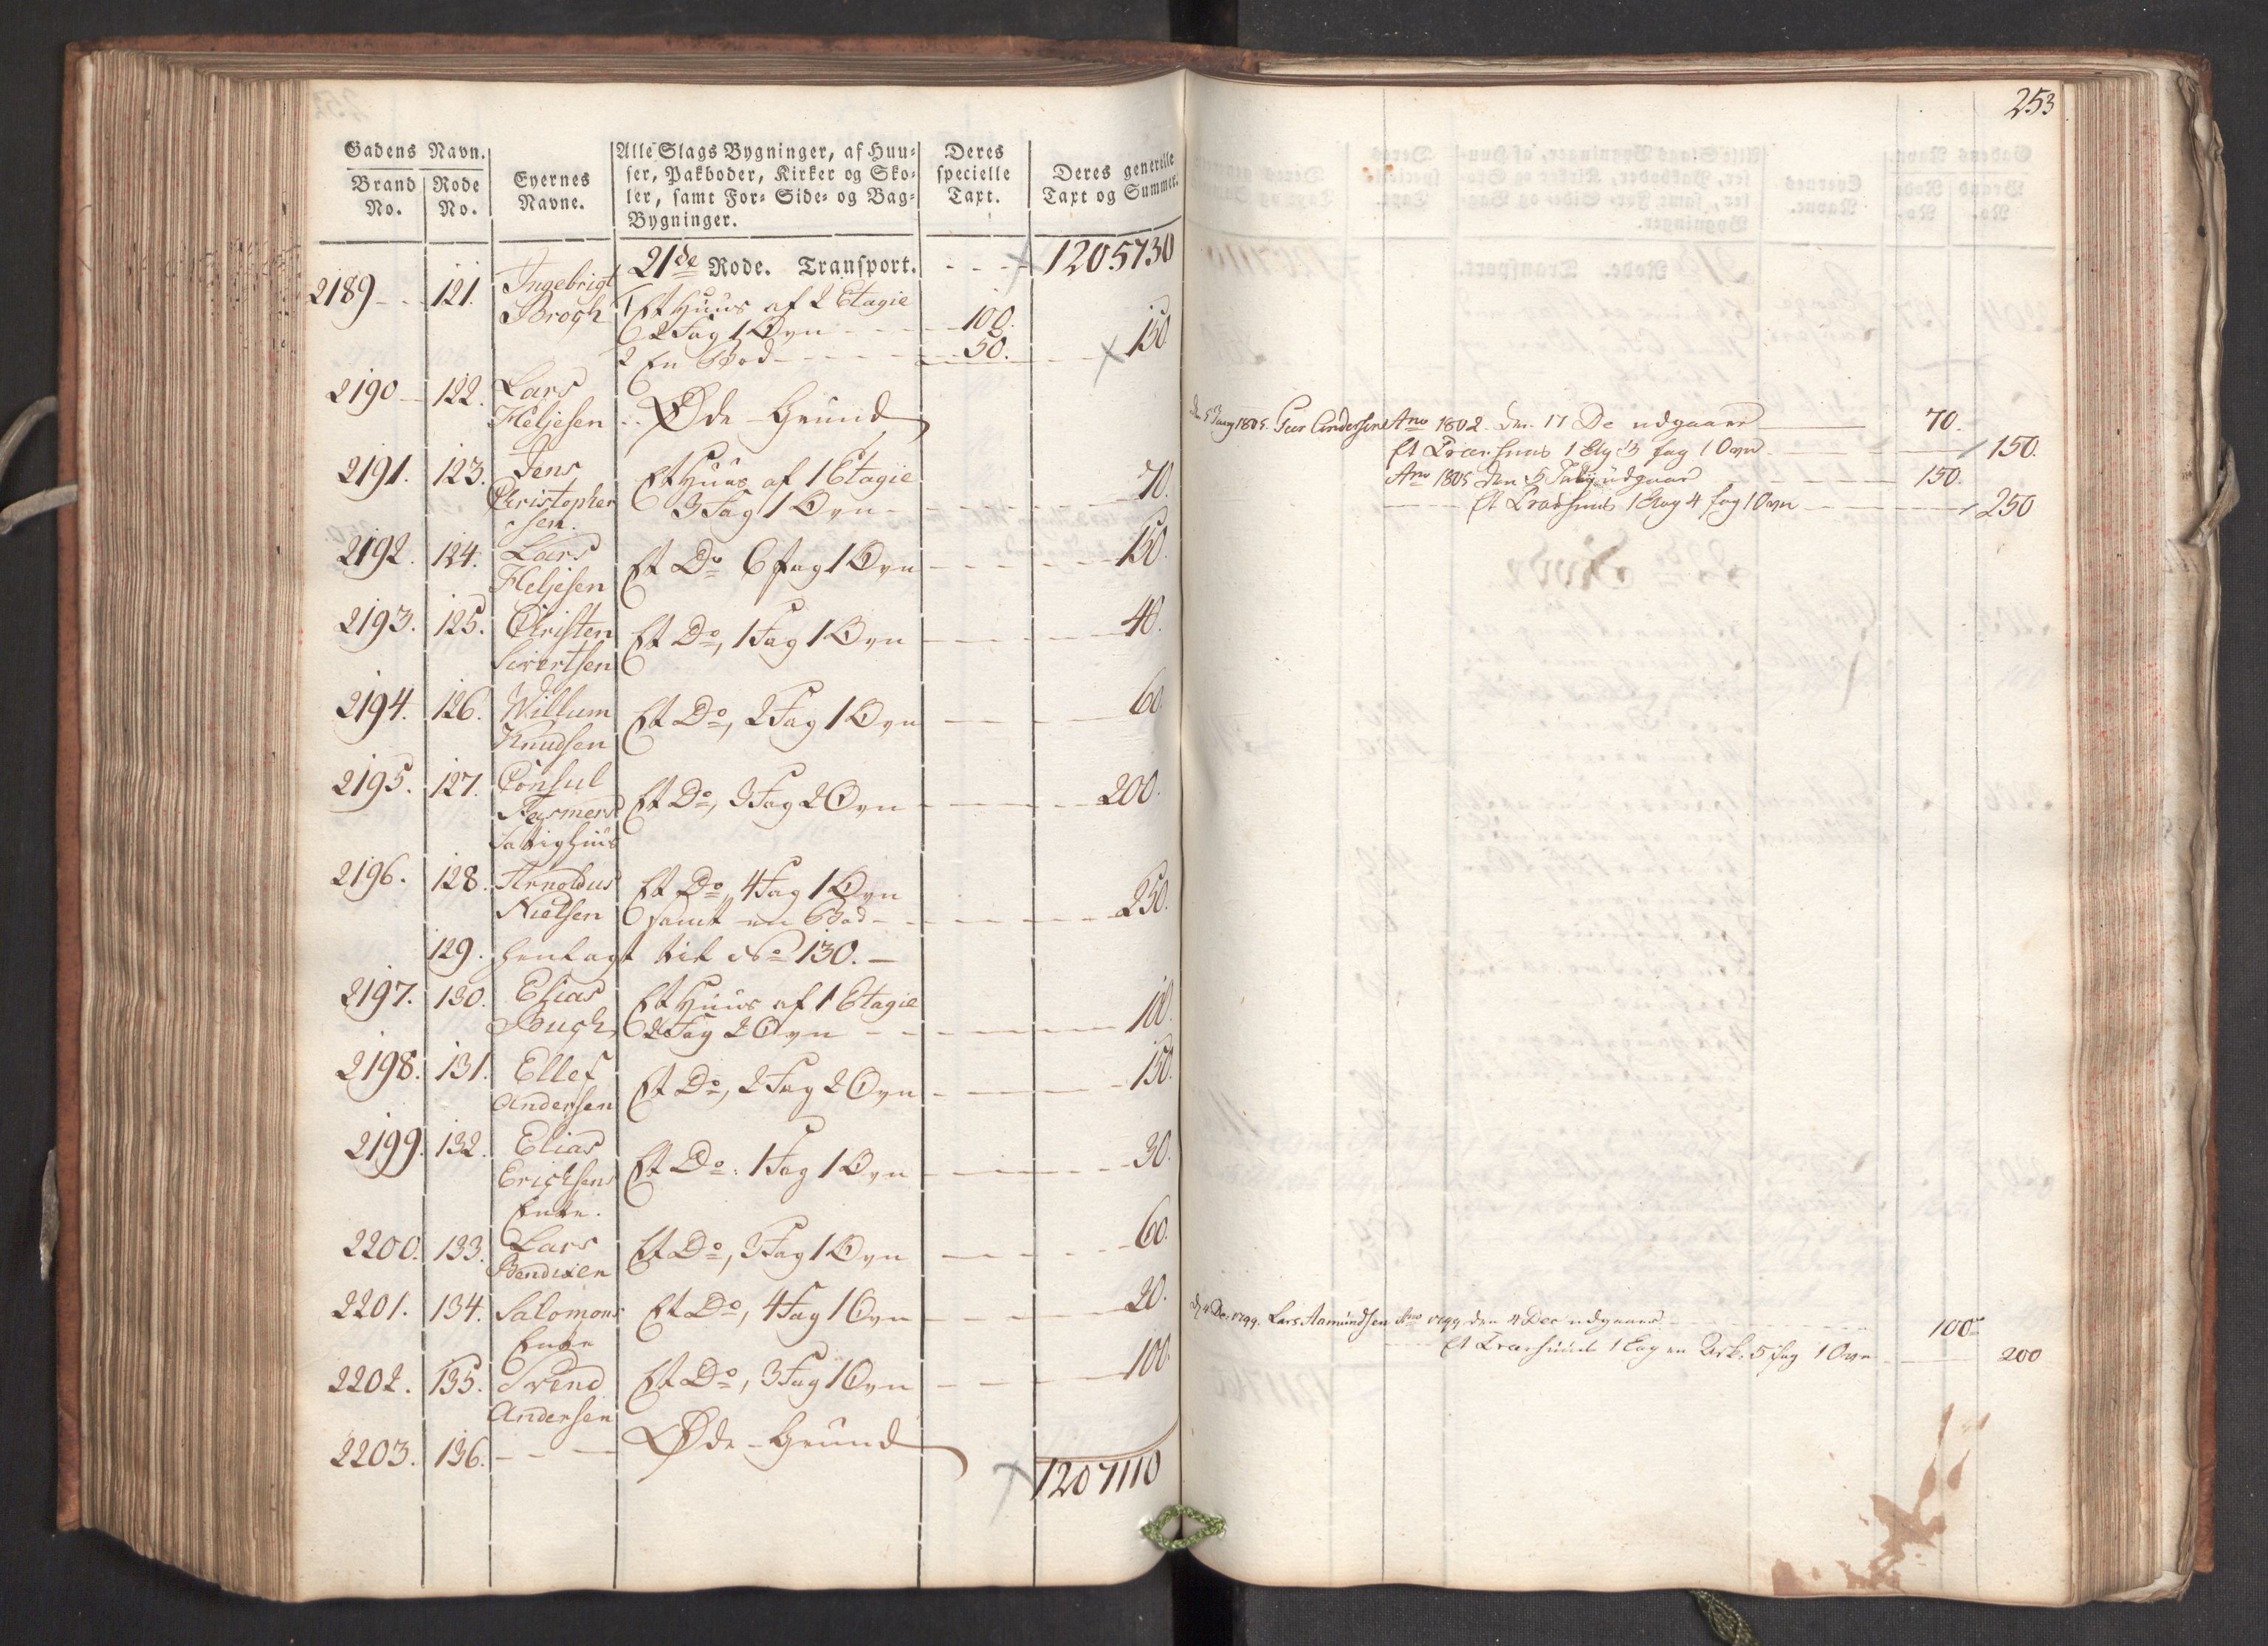 Gadens Navn.
Brand No.
Rode No.
Eyernes Navne.
Alle Slags Bygninger, af Huu-
ser, Pakboder, Kirker og Sko-
ler, samt For- Side- og Bag-
Bygninger.
Deres specielle Taxt.
Deres generelle Taxt og Summer.
21de Rode. Transport. 1205730
2189 121. Ingebrigt Brogh 1 Et Huus af 2 Etagie
2 Fag 1 Ovn 100.
2 En Bod 50. 150
2190 122. Lars Heljesen Øde-Grund
2191. 123. Jens Christopher sen. Et Huus af 1 Etagie
3 Fag 1 Ovn 70.
2192. 124. Lars Heljesen Et Do 6 fag 1 Ovn 150.
2193. 125. Christen Sivertsen Et Do, 1 Fag 1 Ovn 40.
2194. 126. Willum Knudsen Et Do, 2 Fag 1 Ovn 60.
2195. 127. Consul Fasmers Fattighuus Et Do, 3 Fag 2 Ovn 200.
2196. 128. Arnoldus Nielsen Et Do, 4 Fag 1 Ovn
samt en Bod 250.
129. henlagt til No 130.
2197. 130. Elias Busch Et Huus af 1 Etagie
2 Fag 2 Ovn 100.
2198. 131. Ellef Andersen Et Do, 2 Fag 2 Ovn 150.
2199. 132. Elias Erichsens Enke. Et Do. 1 Fag 1 Ovn 30.
2200. 133. Lars Bendixen Et Do, 3 Fag 1 Ovn 60.
2201. 134. Salomons Enke Et Do, 4 Fag 1 Ovn 20.
2202. 135. Svend Andersen Et Do, 3 Fag 1 Ovn 100.
2203. 136. Øde-Grund
1207110
253
1805. Peer Andersen Ano 1802. den 17 De udgaaer 70.
Et Træehuus 1 Etg 3 fag 1 Ovn 150.
Ano 1805 den 5 udgaaer 150.
Et Træehuus 1 Etag 4 fag 1 Ovn 250
d. 4 De. 1799. Lars Aamundsen Ano 1799 den 4 Dec udgaaer 100
Et Træehuus 1 Etag en Ark, 5 fag 1 Ovn 200